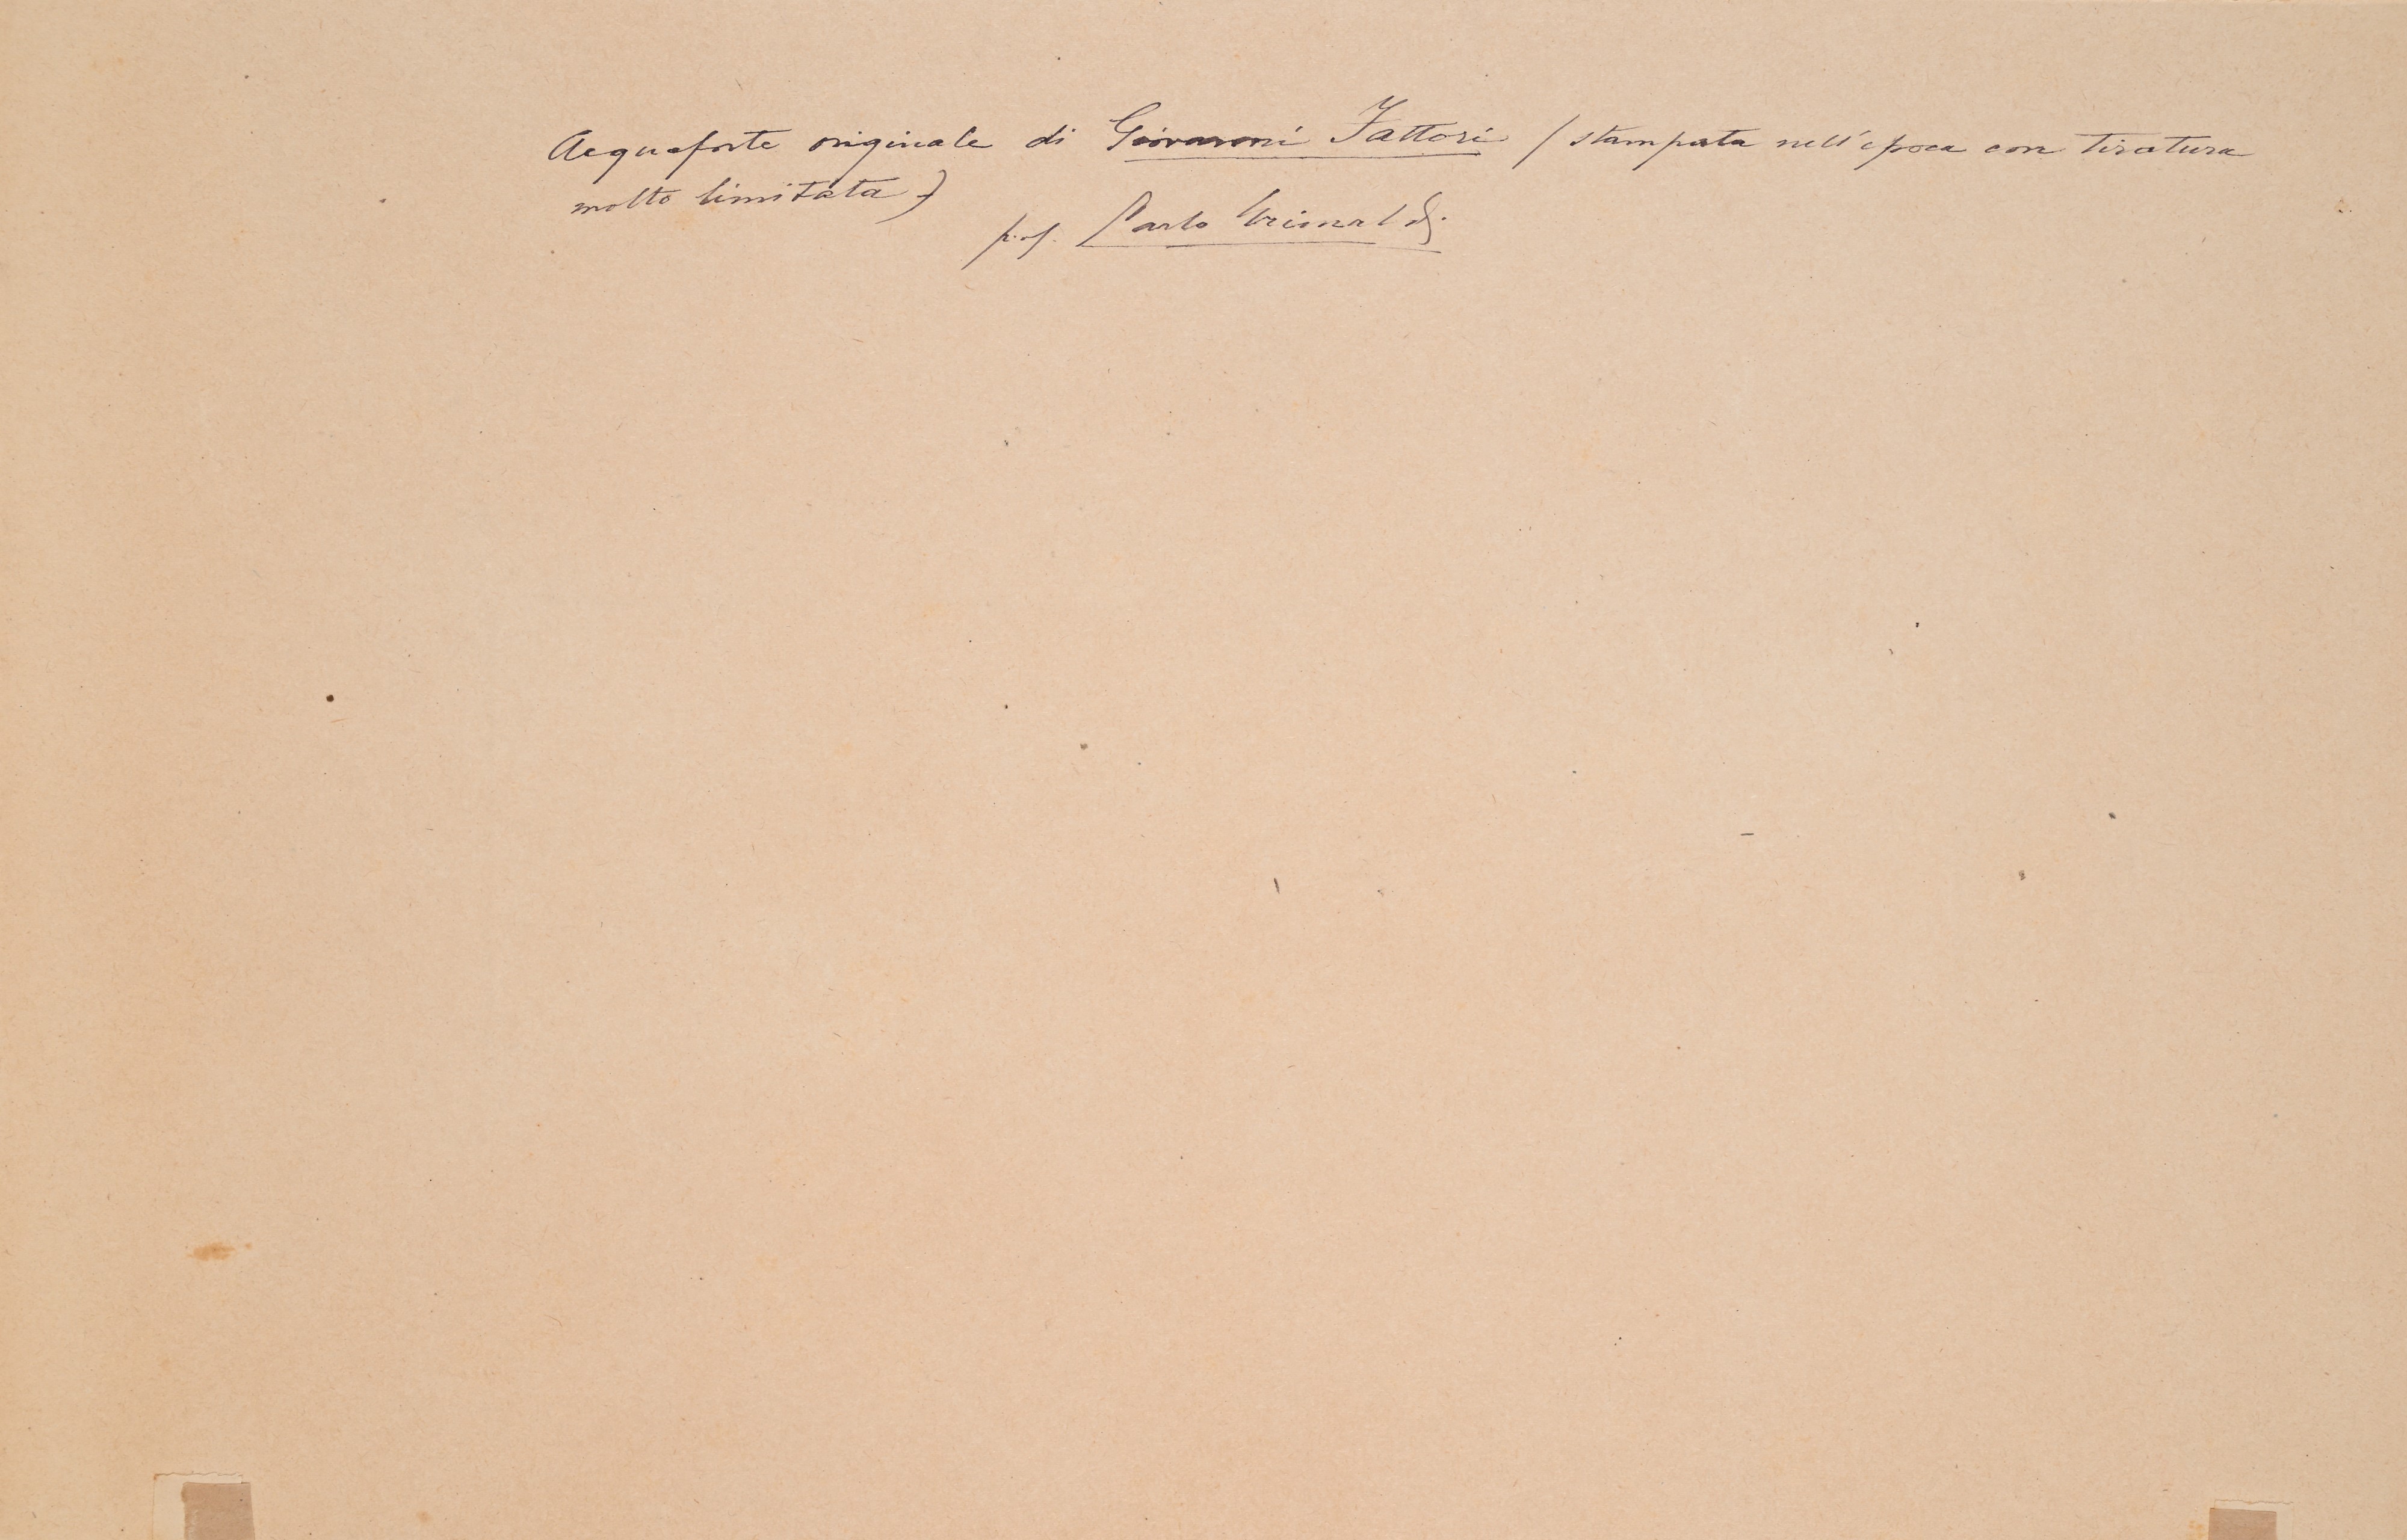 Acquaforte originale di Giovanni Fattori (stampata nell'epoca con tiratura
molto limitata)
prof. Carlo Grimaldi